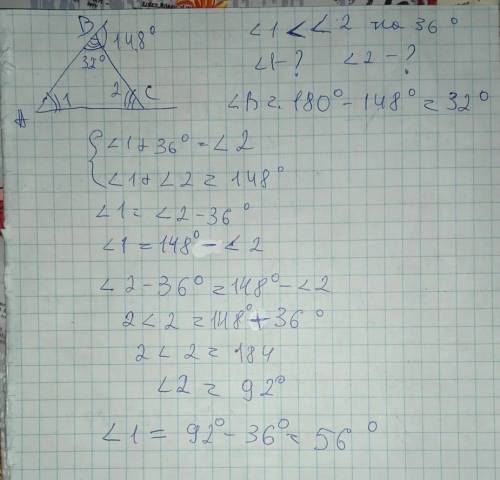 B 148°
32°
A 1 2 C
∠1 < ∠2 на 36°
∠1-? ∠2-?
∠B = 180° - 148° = 32°
∠1 + 36° = ∠2
∠1 + ∠2 = 148°
∠1 = ∠2 - 36°
∠1 = 148° - ∠2
∠2 - 36° = 148° - ∠2
2∠2 = 148° + 36°
2∠2 = 184
∠2 = 92°
∠1 = 92° - 36° = 56°